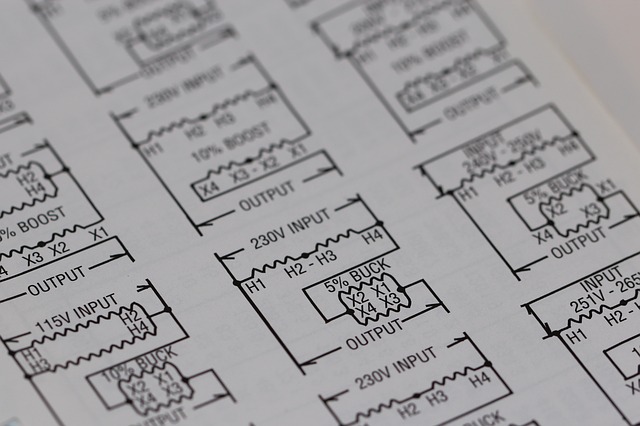 OUTPUT
10% BOOST
X4 X3 - X2 X1
OUTPUT
230V INPUT
H1 H2 H3 H4
10% BOOST
X4 X3 - X2 X1
OUTPUT
INPUT
240V - 250V
H1 H2 - H3 H4
5% BUCK
X1
X2 X3
X4
OUTPUT
H2
H4
% BOOST
X3 X2 X1
OUTPUT
230V INPUT
H1 H2 - H3 H4
5% BUCK
X2 X1
X4 X3
OUTPUT
INPUT
251V - 265
H1 H2 -
115V INPUT
H1 H2
H3 H4
10% BUCK
X2 X1
X4 X3
OUTPUT
230V INPUT
H2 H3 H4
BUCK